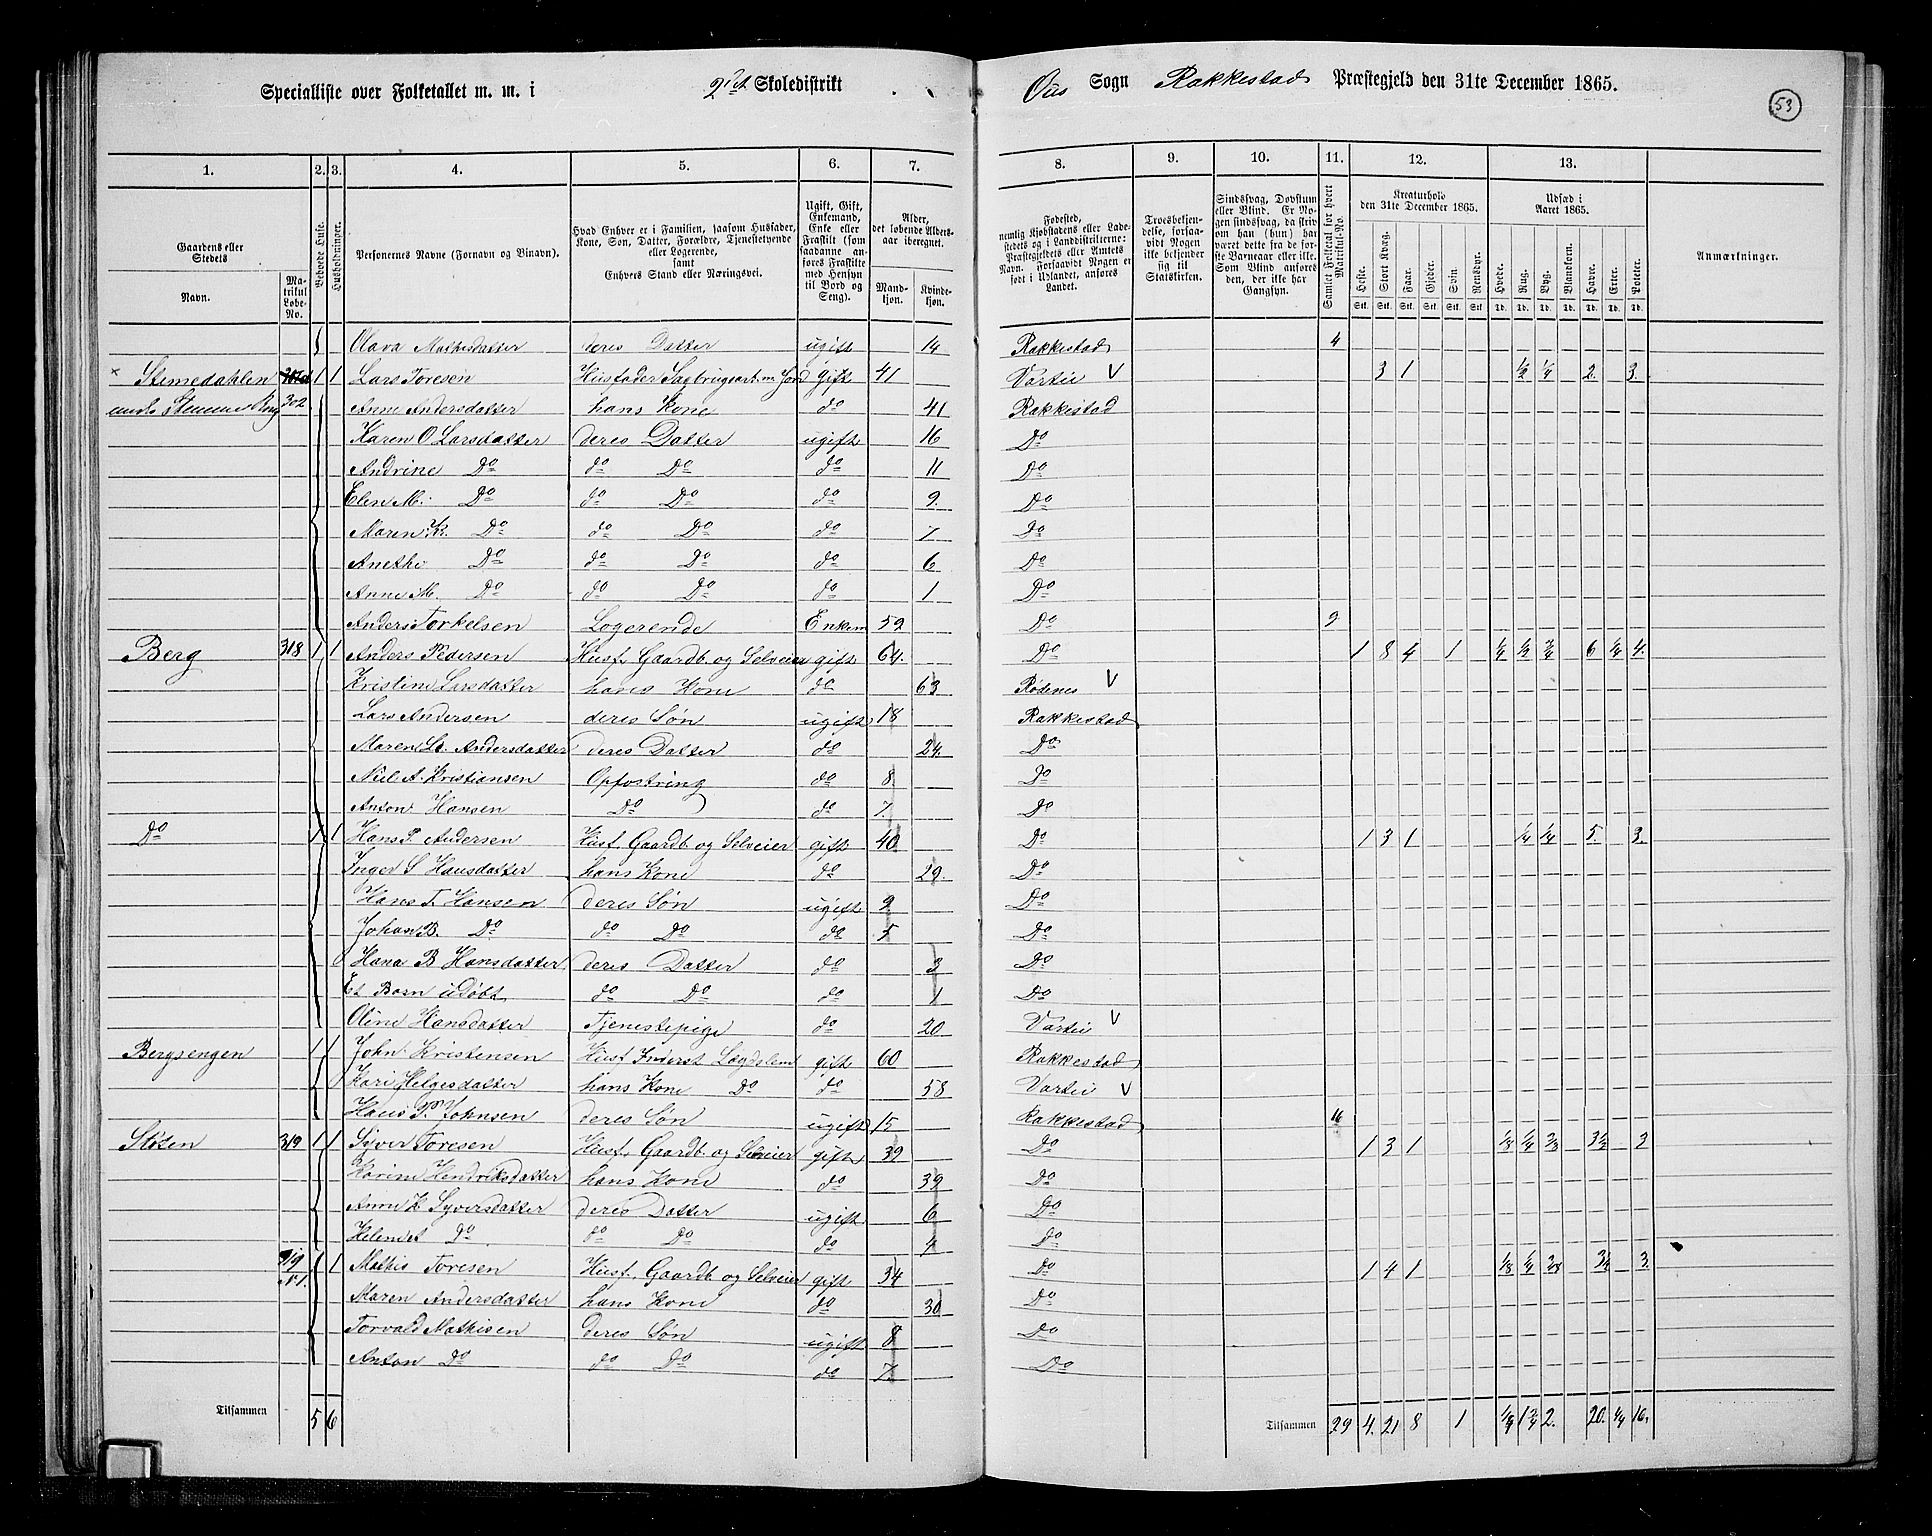 Specialliste over Folketallet m. m. i 2det Skoledistrikt Ous Sogn Rakkestad Præstegjeld den 31te December 1865.
53
1. 2. 3. 4. 5. 6. 7. 8. 9. 10. 11. 12. 13.
Gaardens eller Stedets
Navn.
Matrikul Løbe-No.
Beboede Huse.
Husholdninger.
Personernes Navne (Fornavn og Binavn).
Hvad Enhver er i Familien, saasom Husfader, Kone, Søn, Datter, Forældre, Tjenestetyende eller Logerende, samt Enhvers Stand eller Næringsvei.
Ugift, Gift, Enkemand, Enke eller Fraskilt (som saadanne anføres Fraskilte med Hensyn til Bord og Seng).
Alder, det løbende Aldersaar iberegnet.
Mandkjøn. Kvindekjøn.
Fødested, nemlig Kjøbstadens eller Ladestedets og i Landdistrikterne: Præstegjeldets eller Amtets Navn. Forsaavidt Nogen er født i Udlandet, anføres Landet.
Troesbekjendelse, forsaavidt Nogen ikke bekjender sig til Statskirken.
Sindssvag, Døvstum eller Blind. Er Nogen sindssvag, da skrives om han (hun) har været dette fra de første Barneaar eller ikke. Som Blind anføres den, der ikke har Gangsyn.
Samlet Folketal for hvert Matrikul-No.
Kreaturhold den 31te December 1865.
Heste. Stort Kvæg. Faar. Gjeder. Svin. Rensdyr.
Udsæd i Aaret 1865.
Hvede. Rug. Byg. Blandkorn. Havre. Erter. Poteter.
Stk. Stk. Stk. Stk. Stk. Stk. Td. Td. Td. Td. Td. Td. Td.
Anmærkninger.
Olava Mathisdatter deres Datter ugift 14 Rakkestad 4
× Stemedahlen 1 1 Lars Toresen Husfader Sagbrugsarb. m Jord gift 41 Vartei V 3 1 1/2 1/4 2. 3.
302 Anne Andersdatter hans Kone do 41 Rakkestad
Karen O. Larsdatter deres Datter ugift 16 Do
Andrine Do do Do do 11 Do
Elen M. Do do Do do 9. Do
Maren K. Do do Do do 7 Do
Anethe Do do Do do 6 Do
Anne M. Do do Do do 1 Do
Anders Torkelsen Logerende Enkem 59 Do 9
Berg 318 1 1 Anders Pedersen Husf. Gaardb. og Selveier gift 64. Do 1 8 4 1 1/4 1/2 3/4 6 1/4 4.
Kristine Larsdatter hans Kone do 63 Rødenes V
Lars Andersen deres Søn ugift 18 Rakkestad
Maren L. Andersdatter deres Datter do 24. Do
Niels A. Kristiansen Opfostring do 8. Do
Anton Hansen Do do 7. Do
Do 1 1 Hans P. Andersen Husf. Gaardb. og Selveier gift 40 Do 1 3 1 1/4 1/4 5. 3.
Inger S Hansdatter hans Kone do 29. Do
Hans T. Hansen deres Søn ugift 9 Do
Johan B. Do do Do do 5 Do
Hana B Hansdatter deres Datter do 3 Do
Et Barn udøbt do Do do 1 Do
Oline Hansdatter Tjenestepige do 20 Vartei V
Bergsengen 1 1 John Kristensen Husf. Inderst Lægdslem gift 60 Rakkestad
Kari Helgesdatter hans Kone Do do 58 Vartei V
Hans P. Johnsen deres Søn ugift 15 Rakkestad 16
Støten 319 1 1 Syver Toresen Husf. Gaardb. og Selveier gift 39 Do 1 3 1 1/8 1/4 3/8 3 1/2 3
Karine Hendriksdatter hans Kone do 39 Do
Anne K Syversdatter deres Datter ugift 6 Do
Do do Do do 4 Do
319 1 1 Mathis Toresen Husf. Gaardb. og Selveier gift 34 Do 1 4 1 1/8 1/4 3/8 3 1/2 3.
Maren Andersdatter hans Kone do 30 Do
Torvald Mathisen deres Søn ugift 8 Do
Anton Do do Do do 7. Do
Tilsammen 5 6 Tilsammen 29 4. 21 8 1 2. 20. 1/4 16.